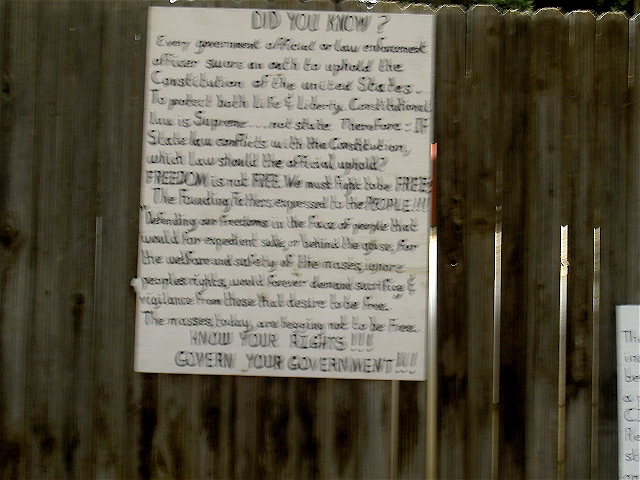 DID YOU KNOW?
Every government official or law enforcement
officer swore an oath to uphold the
Constitution of the united States.
To protect both Life & Liberty. Constitutional
law is Supreme....not state. Therefore: If
State law conflicts with the Constitution,
which Law should the official uphold?
FREEDOM is not FREE. We must fight to be FREE
The Founding Fathers expressed to the PEOPLE!!!!
"Defending our freedoms in the face of people that
would for expedient sake, or behind the guise, for
the welfare and safety of the masses, ignore
peoples rights, would forever demand sacrifice &
vigilance from those that desire to be free."
The masses, today, are begging not to be Free.
KNOW YOUR RIGHTS!!!
GOVERN YOUR GOVERNMENT!!!!